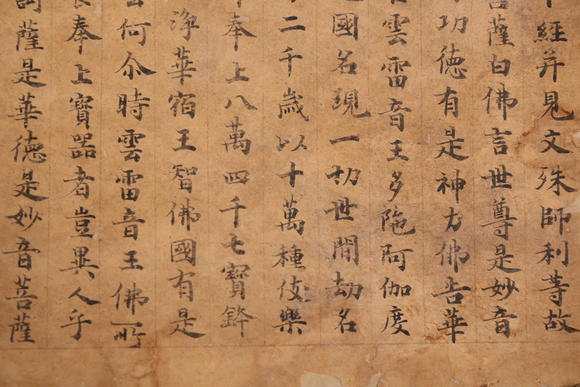 經并見文殊師利等故
薩白佛言世尊是妙音
功德有是神力佛告華
雲雷音王多陁阿伽度
國名現一切世間劫名
二千歲以十萬種伎樂
奉上八萬四千七寶鉢
淨華宿王智佛國有是
何尒時雲雷音王佛所
奉上寶器者豈異人乎
薩是華德是妙音菩薩